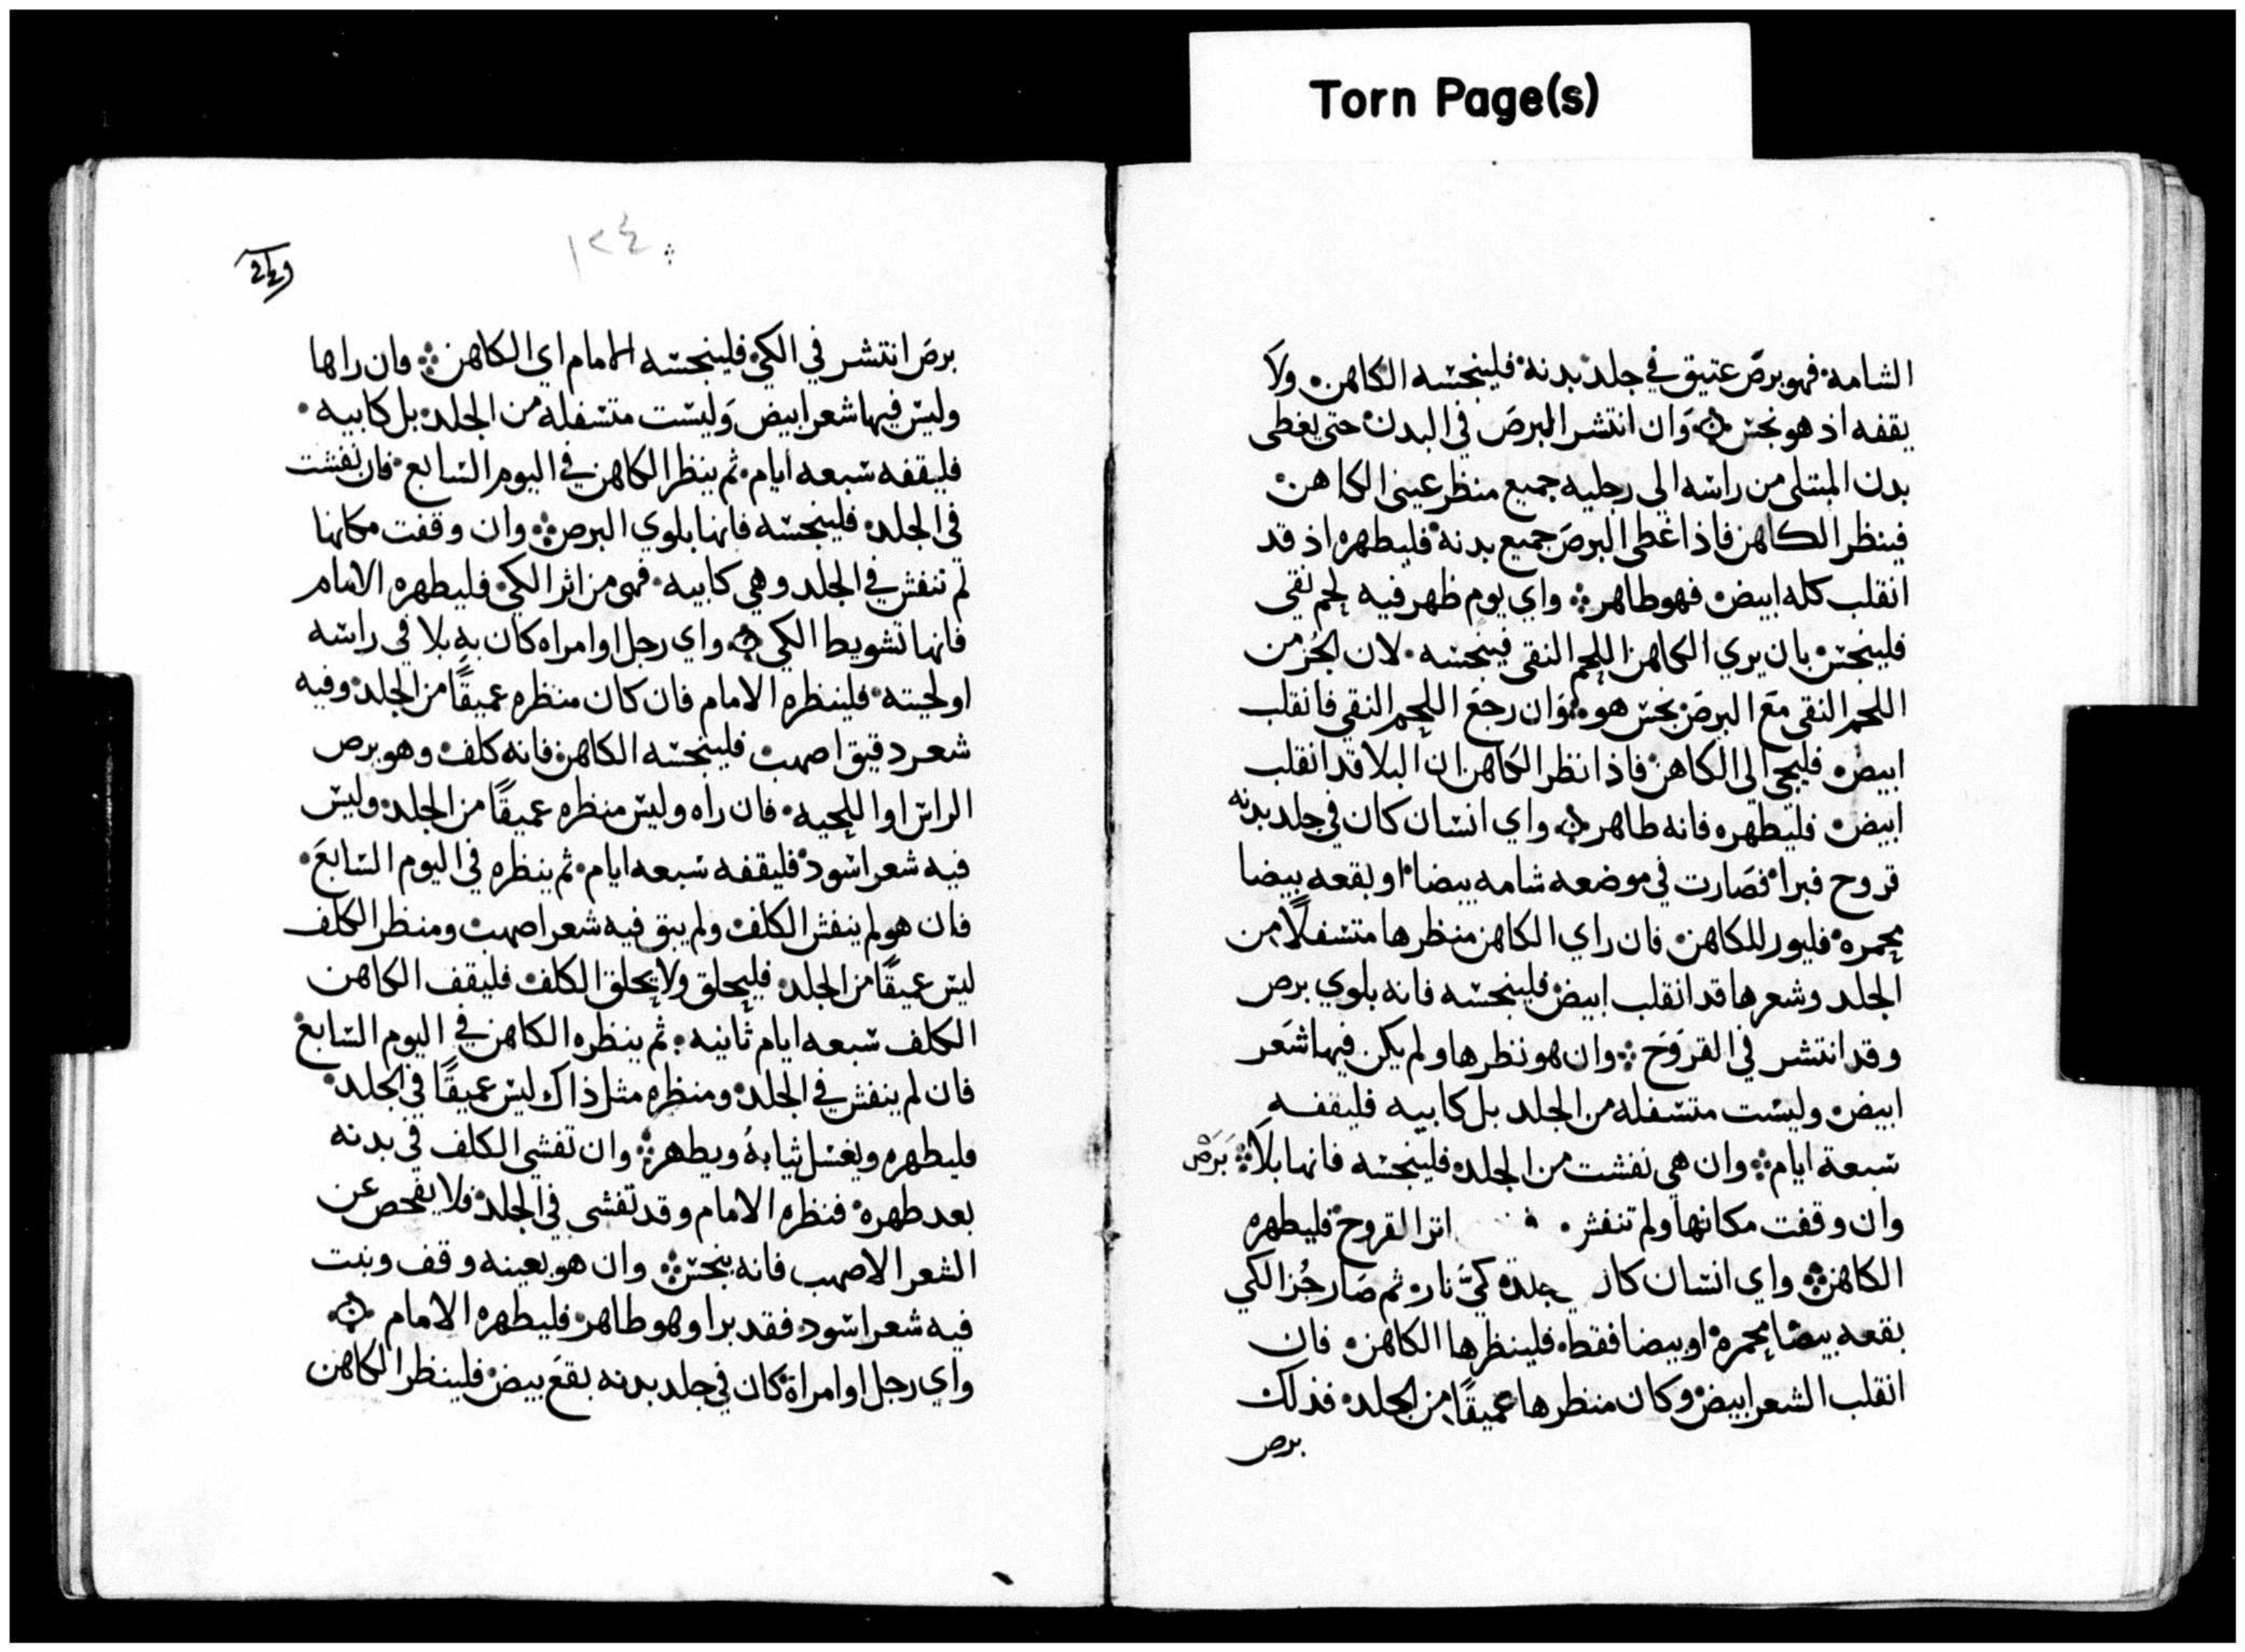 Torn Page(s)
الشامه فهو برص عتيق في جلد بدنه فلينجسه الكاهن ولا
يقفه اذ هو نجس وان انتشر البرص في البدن حتى يغطى
بدن المبتلى من راسه الى رجليه جميع منظر عينى الكاهن
فينظر الكاهن فاذا غطى البرص جميع بدنه فليطهره اذ قد
انقلب كله ابيض فهو طاهر واي يوم ظهر فيه لحم نقى
فلينجس بان يري الكاهن اللحم النقى فينجسه لان الجز من
اللحم النقى مع البرص نجس هو وان رجع اللحم النقى فانقلب
ابيض فليجى الى الكاهن فاذا نظر الكاهن ان البلا قد انقلب
ابيض فليطهره فانه طاهر واي انسان كان في جلد بدنه
قروح فبرا فصارت في موضعه شامه بيضا او بقعه بيضا
محمره فليور للكاهن فان راي الكاهن منظرها متسفلا من
الجلد وشعرها قد انقلب ابيض فلينجسه فانه بلوي برص
وقد انتشر في القروح وان هو نظرها ولم يكن فيها شعر
ابيض وليست متسفله من الجلد بل كابيه فليقفه
سبعة ايام وان هي نفشت من الجلد فلينجسه فانها بلا برص
وان وقفت مكانها ولم تنفش اثر القروح فليطهره
الكاهن واي انسان كان جلده كي نار ثم صار جز الكي
بقعه بيضا محمره او بيضا فقط فلينظرها الكاهن فان
انقلب الشعر ابيض وكان منظرها عميقا من الجلد فذلك
برص
١٢٤
برص انتشر في الكي فلينجسه الامام اي الكاهن وان راها
وليس فيها شعر ابيض وليست متسفله من الجلد بل كابيه
فليقفه سبعه ايام ثم ينظر الكاهن في اليوم السابع فان نفشت
في الجلد فلينجسه فانها بلوي البرص وان وقفت مكانها
لم تنفش في الجلد وهي كابيه فهي من اثر الكي فليطهره الامام
فانها تشويط الكي واي رجل او امراه كان به بلا في راسه
او لحيته فلينظره الامام فان كان منظره عميقا من الجلد وفيه
شعر دقيق اصهب فلينجسه الكاهن فانه كلف وهو برص
الراس او اللحيه فان راه وليس منظره عميقا من الجلد وليس
فيه شعر اسود فليقفه سبعه ايام ثم ينظره في اليوم السابع
فان هو لم ينفش الكلف ولم يبق فيه شعر اصهب ومنظر الكلف
ليس عميقا من الجلد فليحلق ولا يحلق الكلف فليقف الكاهن
الكلف سبعه ايام ثانيه ثم ينظره الكاهن في اليوم السابع
فان لم ينفش في الجلد ومنظره مثل ذاك ليس عميقا في الجلد
فليطهره ويغسل ثيابه ويطهر وان تفشى الكلف في بدنه
بعد طهره فنظره الامام وقد تفشى في الجلد فلا يفحص عن
الشعر الاصهب فانه نجس وان هو بعينه وقف ونبت
فيه شعر اسود فقد برا وهو طاهر فليطهره الامام
واي رجل او امراة كان في جلد بدنه بقع بيض فلينظر الكاهن